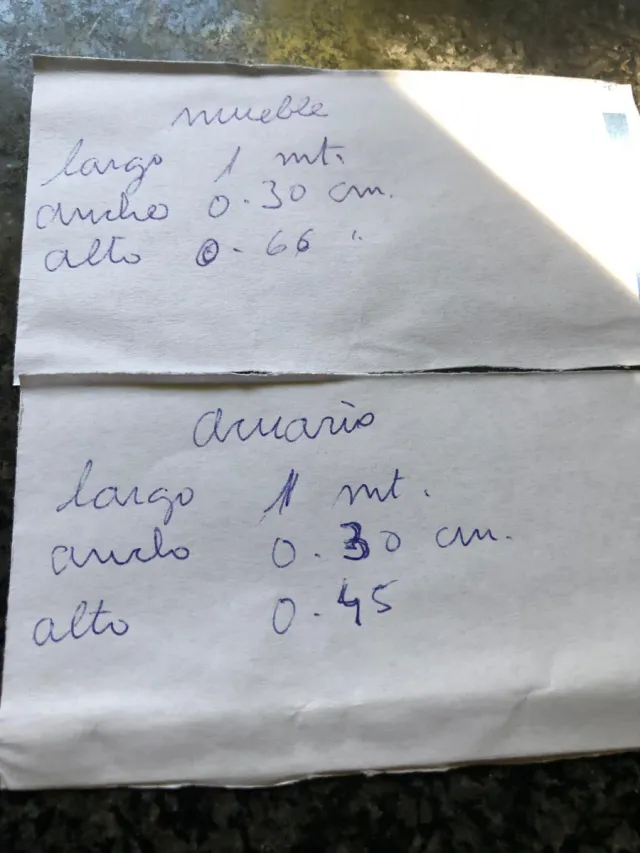 mueble
largo 1 mt.
ancho 0.30 cm.
alto 0.66 "
acuario
largo 1 mt.
ancho 0.30 cm.
alto 0.45